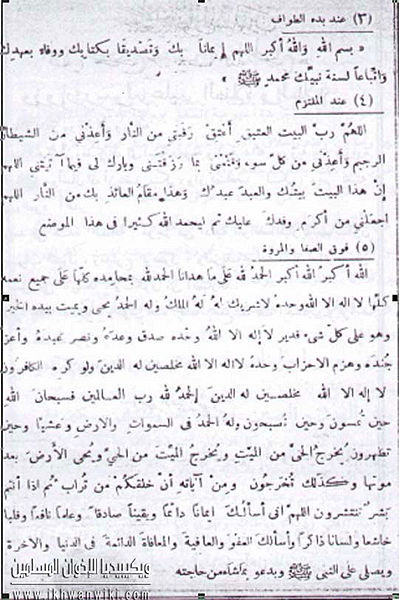 (٣) عند بدء الطواف
« بسم الله والله أكبر اللهم إيماناً بك وتصديقا بكتابك ووفاء بعهدك
وَاتباعاً لسنة نبيك محمدٍ ﷺ »
(٤) عند الملتزم
اللهُمّ ربّ البيت العتيق أعتق رقبتي من النَّار وأعذني من الشيطان
الرجيم وَأعذني من كلّ سوء وَقَنّعني بما رَزقتَني وبارك لى فيما آتيتنى اللهم
إنّ هذا البيتَ بيتُك والعبد عبدك وهَذا مقامُ العائذ بك من النَّار اللهم
اجعلني من أكرَم وفدك عليك ثم ليحمد الله كثيرا فى هذا الموضع
(٥) فوق الصفا والمروة
الله أكبرُ الله أكبر الحمدُ لله عَلَى مَا هدانا الحمدلله بمحامده كلّها عَلَى جميع نعمه
كلّها لا اله الا الله وحدهُ لاشريك لهُ لهُ الملكُ وله الحمدُ يحى ويميت بيده الخيرُ
وهو على كلّ شىء قدير لا إله الا اللهُ وحْده صدق وعدَهُ ونصر عبدهُ وأعز
جُندَه وهزم الاحزاب وحدهُ لا اله الا الله مخلصين له الدين ولو كره الكافرون
لا إله الا الله مخلصين له الدين الحمدُ لله رب العالمين فسبحان الله
حين تُمسون وحين تُصبحون ولهُ الحمدُ فى السموات والارض وعشيًّا وحين
تظهرون يُخرجُ الحىَّ من الميّتِ ويُخرجُ الميّتَ من الحيّ ويُحيى الأرضَ بعد
موتها وكذلك تُخرَجون ومن آياته أن خلقكُمْ من تُراب ثُم اذا أنتم
بشرٌ تنتشرون اللهم انى أسألُكَ إيمانا دائمًا ويقيناً صادقاً وعلما نافعًا وقلبا
خاشعا ولسانا ذاكرا وأسألك العفو والعافية والمعافاة الدائمة فى الدنيا والآخرة
ويصلى على النبى ﷺ ويدعو بما شاء من حاجته
ويكيبيديا الإخوان المسلمين
www.ikhwanwiki.com